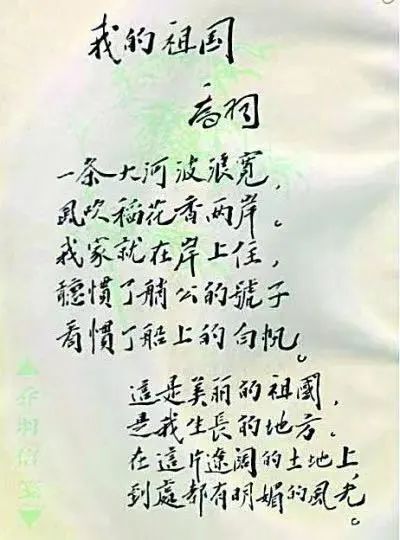 我的祖国
喬羽
一条大河波浪寬，
風吹稻花香两岸。
我家就在岸上住，
聽慣了艄公的號子
看慣了船上的白帆。
這是美丽的祖國，
是我生長的地方，
在這片遼阔的土地上，
到處都有明媚的風光。
乔羽信笺